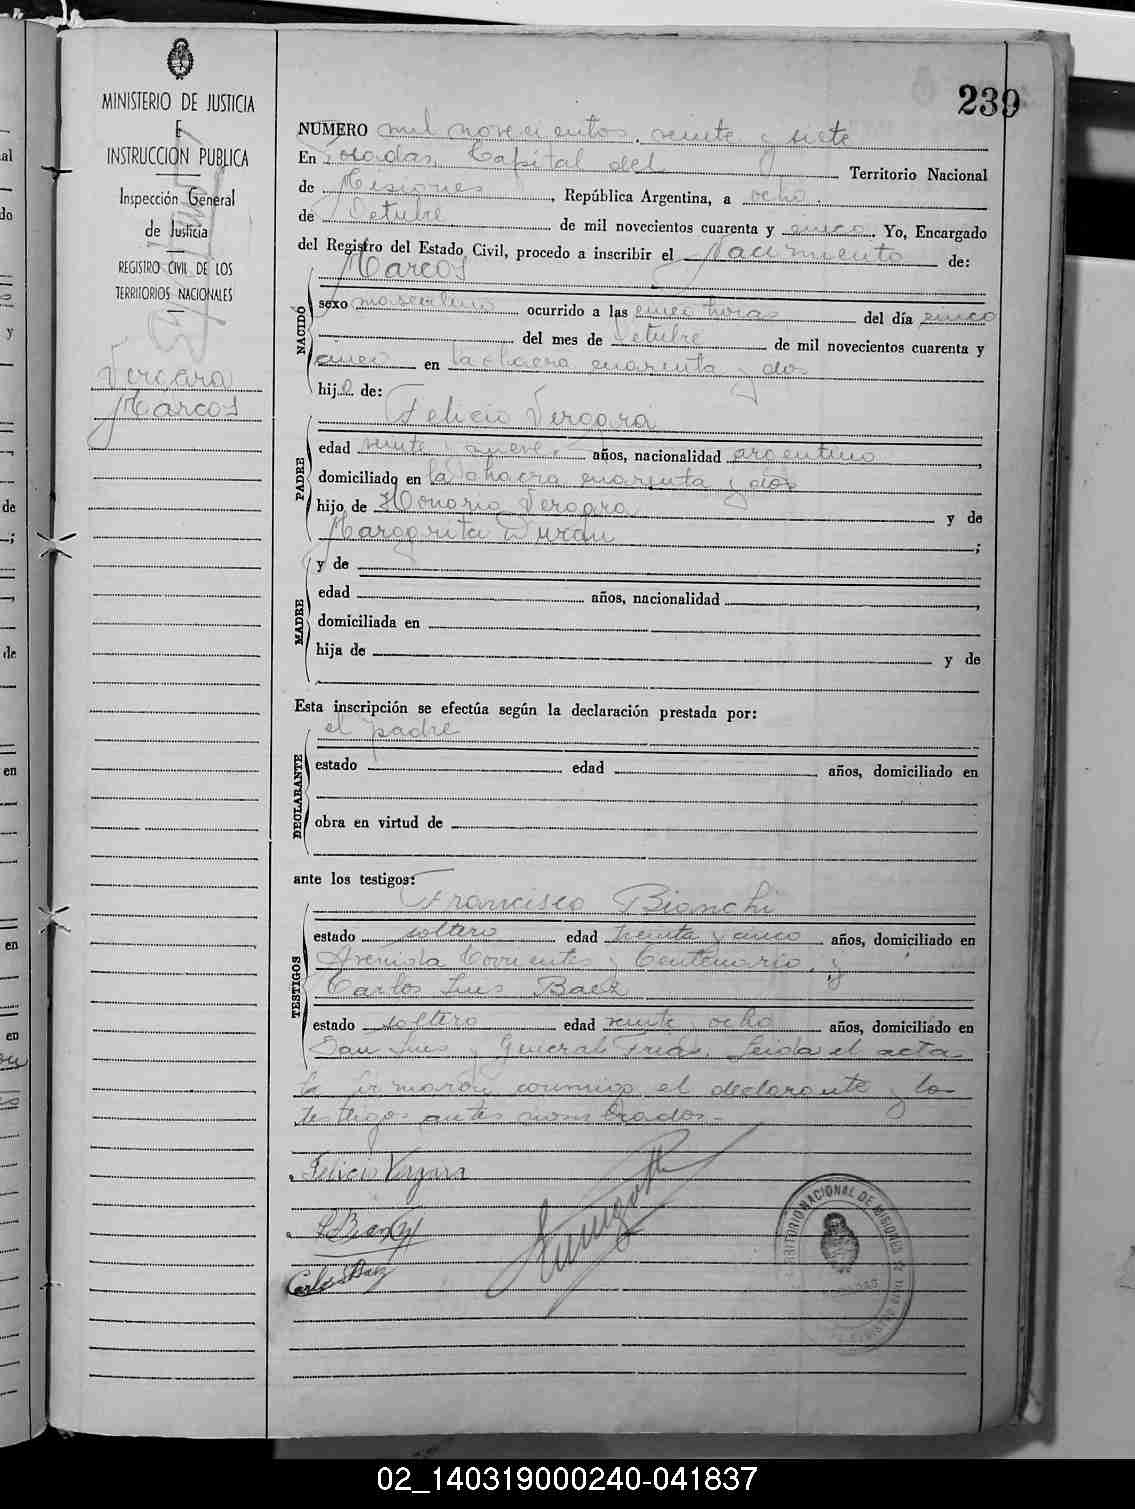 MINISTERIO DE JUSTICIA
E
INSTRUCCIÓN PUBLICA
Inspección General
de Justicia
REGISTRO CIVIL DE LOS
TERRITORIOS NACIONALES
Vergara
Marcos
239
NÚMERO mil novecientos veinte y siete
En Posadas Capital del Territorio Nacional
de Misiones, República Argentina, a ocho
de Octubre de mil novecientos cuarenta y cinco Yo, Encargado
del Registro del Estado Civil, procedo a inscribir el Nacimiento de:
Marcos
NACIDO
sexo masculino ocurrido a las cinco horas del día cinco
del mes de Octubre de mil novecientos cuarenta y
cinco en la chacra cuarenta y dos
hijo de:
Felicio Vergara
PADRE
edad veinte y nueve años, nacionalidad argentino,
domiciliado en la chacra cuarenta y dos
hijo de Honorio Vergara y de
Margarita Duran;
y de
MADRE
edad años, nacionalidad,
domiciliada en
hija de y de
Esta inscripción se efectúa según la declaración prestada por:
el padre
DECLARANTE
estado edad años, domiciliado en
obra en virtud de
ante los testigos:
Francisco Bianchi
TESTIGOS
estado soltero edad treinta y cinco años, domiciliado en
Avenida Corrientes y Centenario, y
Carlos Luis Baez
estado soltero edad veinte ocho años, domiciliado en
San Luis y General Frias Leida el acta
la firmaron conmigo el declarante y los
testigos antes nombrados.-
Felicio Vergara
Carlos Baez
TERRITORIO NACIONAL DE MISIONES
02_140319000240-041837